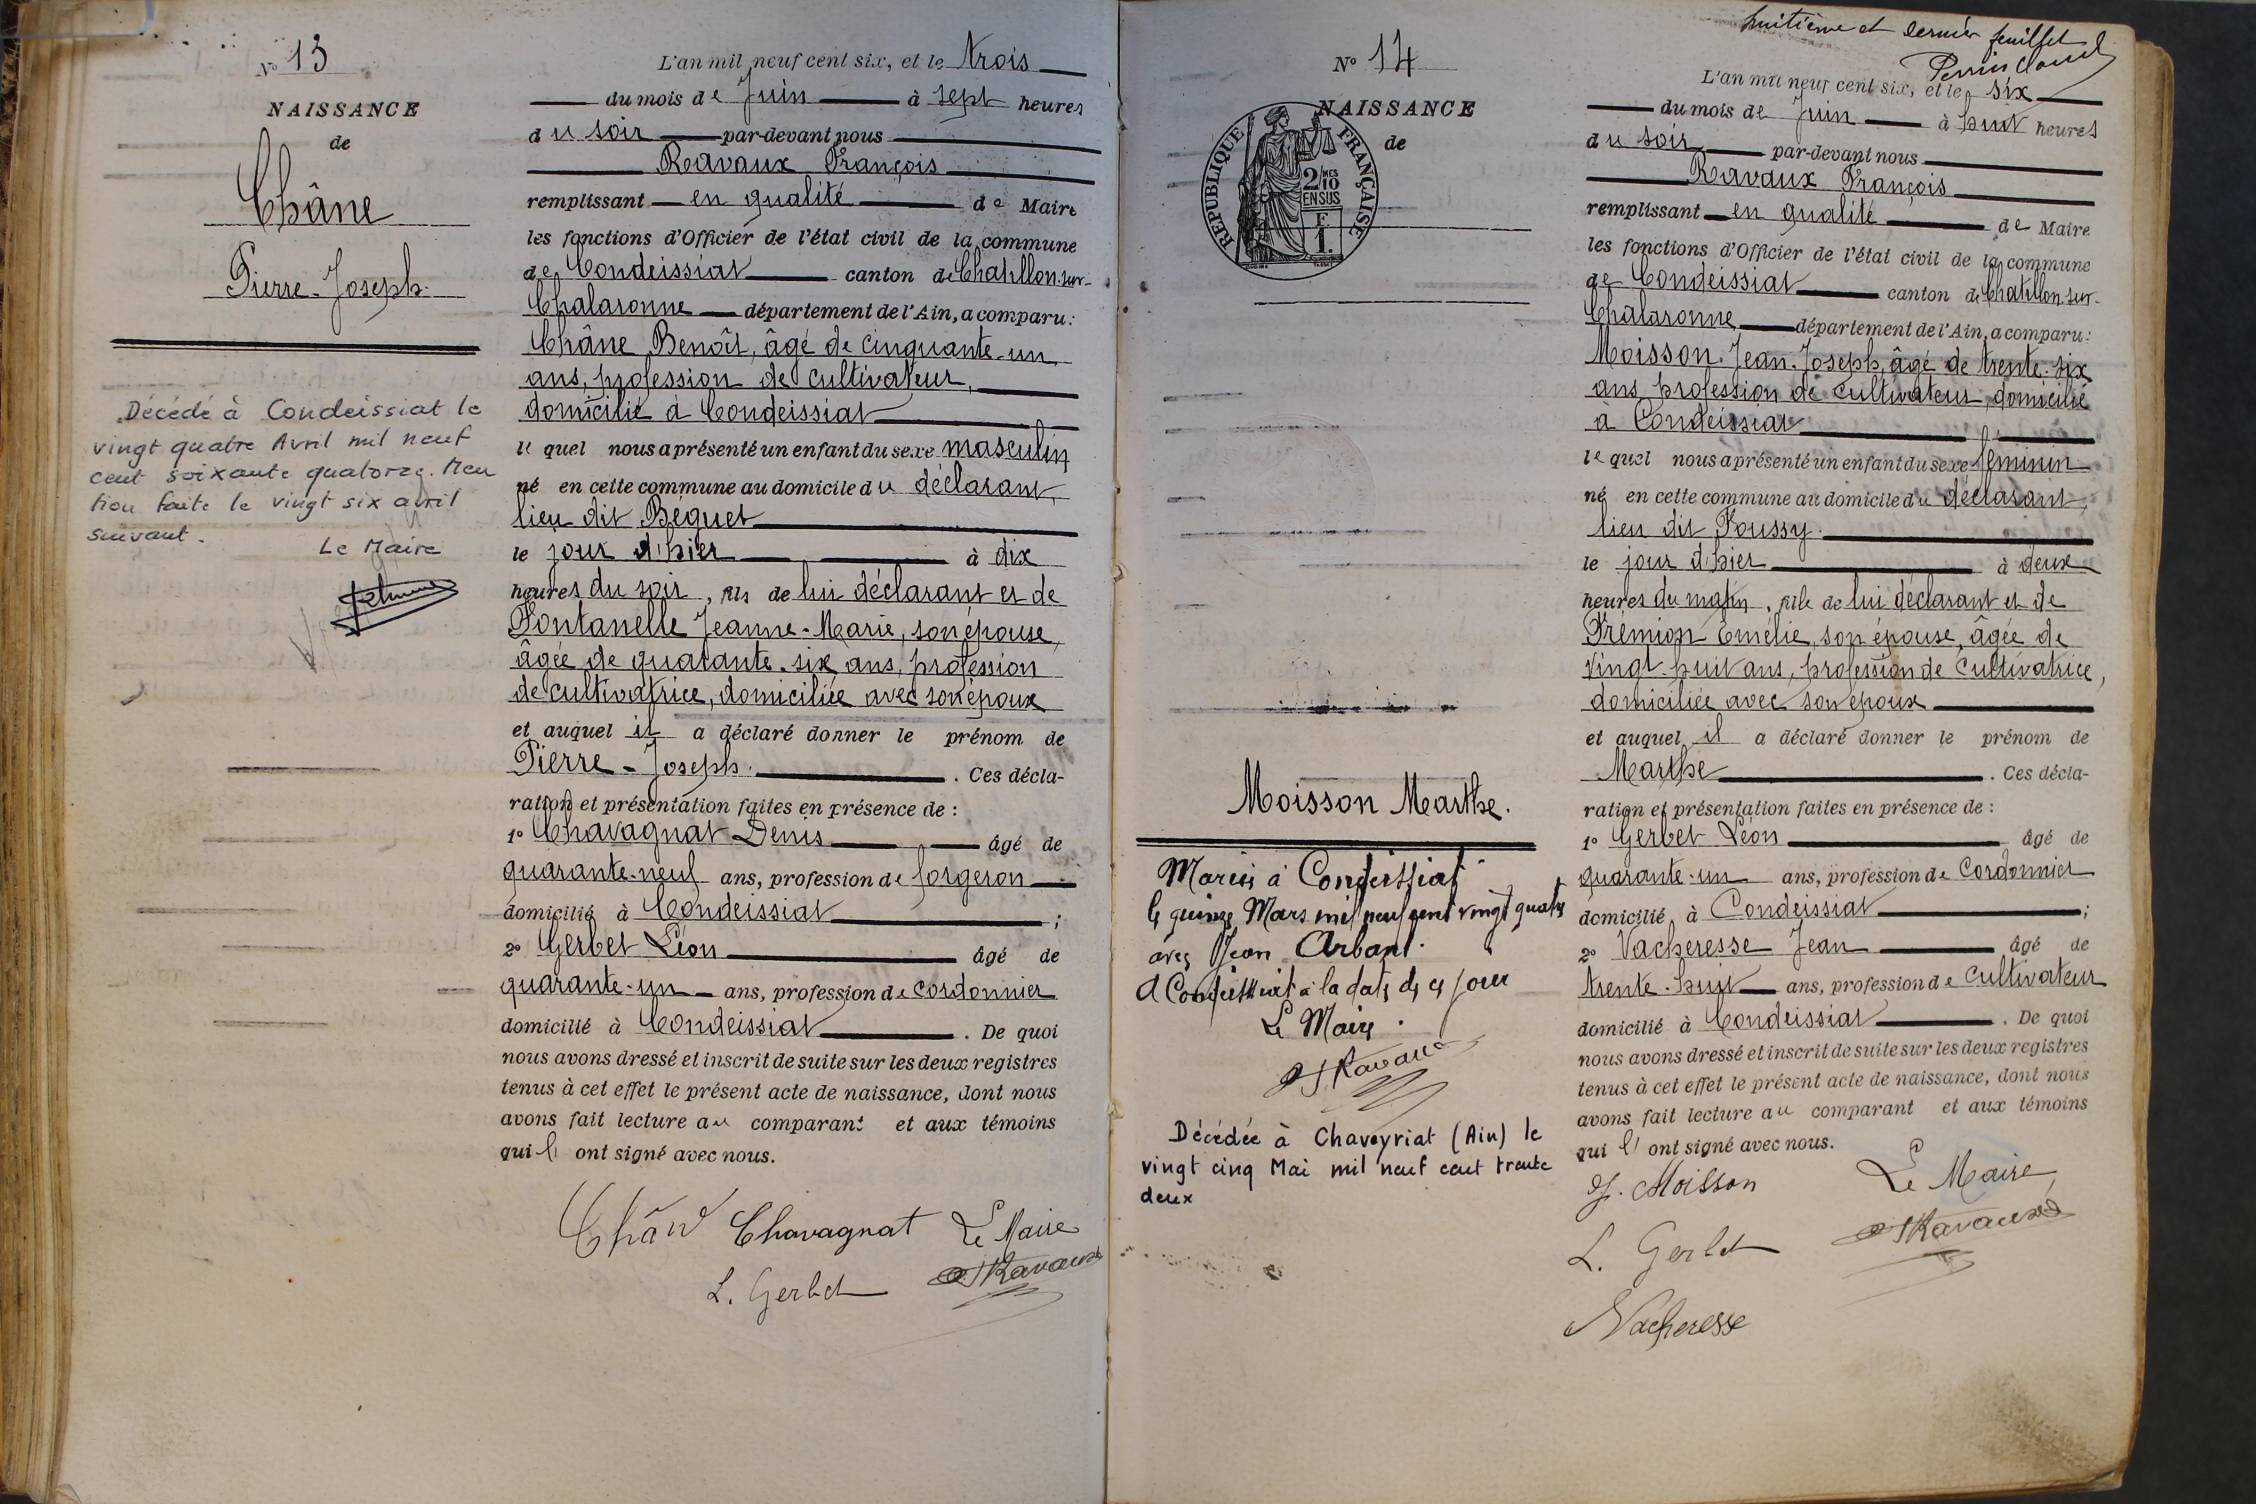 N° 13
NAISSANCE
de
Châne
Pierre-Joseph.
Décédé à Condeissiat le
vingt quatre Avril mil neuf
cent soixante quatorze. Men
tion faite le vingt six avril
suivant.
Le Maire
L'an mil neuf cent six, et le trois
du mois de Juin à sept heures
du soir par-devant nous
Ravaux François
remplissant en qualité de Maire
les fonctions d'Officier de l'état civil de la commune
de Condeissiat canton de Chatillon-sur-
Chalaronne département de l'Ain, a comparu:
Châne Benoît, âgé de cinquante-un
ans, profession de cultivateur,
domicilié à Condeissiat
le quel nous a présenté un enfant du sexe masculin
né en cette commune au domicile du déclarant,
lieu dit Béguet
le jour d'hier à dix
heures du soir, fils de lui déclarant et de
Fontanelle Jeanne-Marie, son épouse,
âgée de quarante-six ans, profession
de cultivatrice, domiciliée avec son époux
et auquel il a déclaré donner le prénom de
Pierre-Joseph. . Ces décla-
ration et présentation faites en présence de :
1° Chavagnat Denis âgé de
quarante-neuf ans, profession de forgeron
domicilié à Condeissiat ;
2° Gerbet Léon âgé de
quarante-un ans, profession de cordonnier
domicilié à Condeissiat . De quoi
nous avons dressé et inscrit de suite sur les deux registres
tenus à cet effet le présent acte de naissance, dont nous
avons fait lecture au comparant et aux témoins
qui l' ont signé avec nous.
Chavagnat Le Maire
L. Gerbet Ravaux
huitième et dernier feuillet
N° 14
NAISSANCE
de
REPUBLIQUE FRANÇAISE
2/MES
10
EN SUS
F
1.
Moisson Marthe.
Mariée à Condeissiat
le quinze Mars mil neuf cent vingt quatre
avec Jean Arbant.
A Condeissiat à la date de ce jour
Le Maire.
Ravaux
Décédée à Chaveyriat (Ain) le
vingt cinq Mai mil neuf cent trente
deux
L'an mil neuf cent six, et le six
du mois de Juin à huit heures
du soir par-devant nous
Ravaux François
remplissant en qualité de Maire
les fonctions d'Officier de l'état civil de la commune
de Condeissiat canton de Chatillon-sur-
Chalaronne département de l'Ain, a comparu:
Moisson Jean-Joseph, âgé de trente-six
ans, profession de cultivateur, domicilié
à Condeissiat
le quel nous a présenté un enfant du sexe féminin
né en cette commune au domicile du déclarant,
lieu dit Poussy.
le jour d'hier à deux
heures du matin, fille de lui déclarant et de
Prémion Emélie, son épouse, âgée de
vingt-huit ans, profession de cultivatrice,
domiciliée avec son époux
et auquel il a déclaré donner le prénom de
Marthe . Ces décla-
ration et présentation faites en présence de :
1° Gerbet Léon âgé de
quarante-un ans, profession de cordonnier
domicilié à Condeissiat ;
2° Vacheresse Jean âgé de
trente-huit ans, profession de cultivateur
domicilié à Condeissiat . De quoi
nous avons dressé et inscrit de suite sur les deux registres
tenus à cet effet le présent acte de naissance, dont nous
avons fait lecture au comparant et aux témoins
qui l' ont signé avec nous.
J. Moisson Le Maire
L. Gerbet Ravaux
Vacheresse